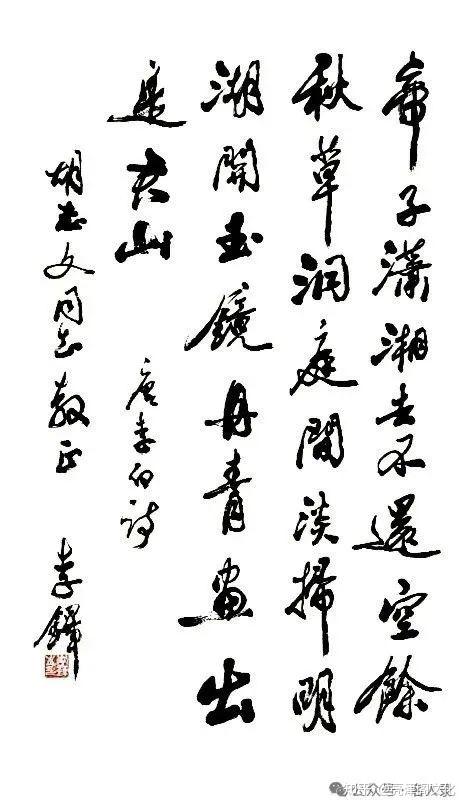 帝子瀟湘去不還空餘
秋草洞庭間淡掃明
湖開玉鏡丹青畫出
是君山
唐李白詩
胡志文同志教正
李鐸
公众号